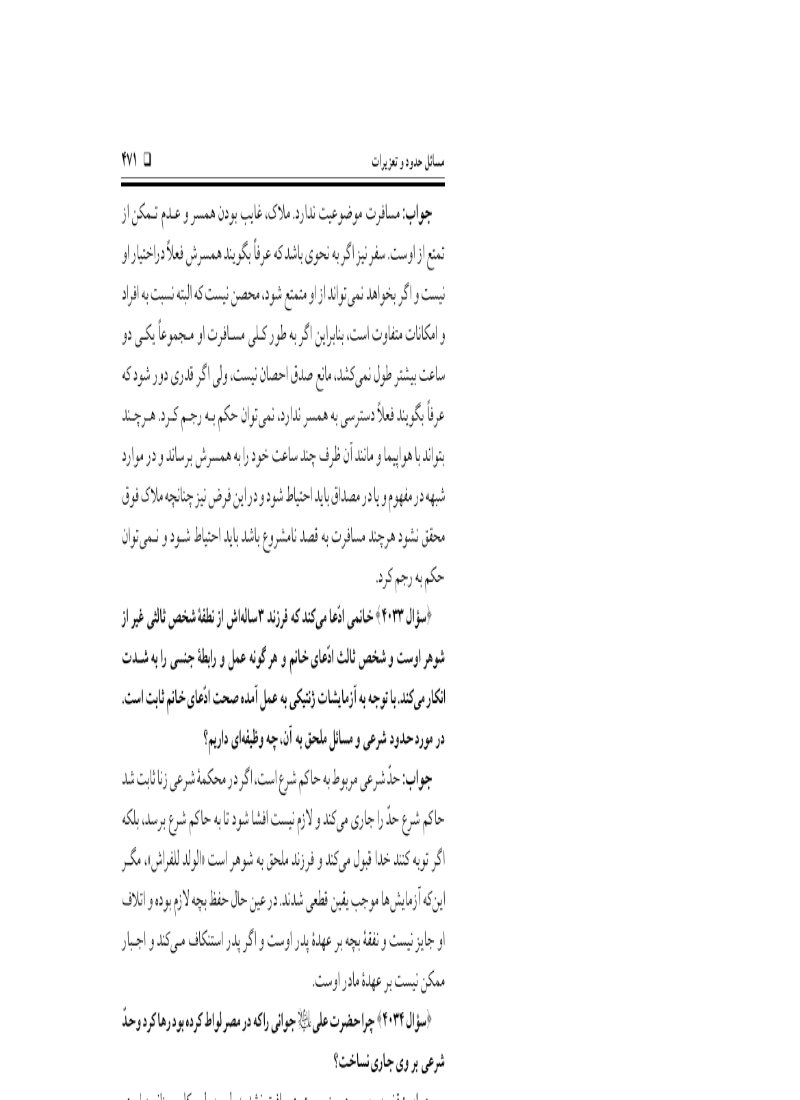 مسائل حدود و تعزیرات ❑ ۴۷۱
جواب: مسافرت موضوعیت ندارد. ملاک، غایب بودن همسر و عـدم تـمکن از
تمتع از اوست. سفر نیز اگر به نحوی باشد که عرفاً بگویند همسرش فعلاً دراختیار او
نیست و اگر بخواهد نمی‌تواند از او متمتع شود، محصن نیست که البته نسبت به افراد
و امکانات متفاوت است، بنابراین اگر به طور کـلی مسـافرت او مـجموعاً یکـی دو
ساعت بیشتر طول نمی‌کشد، مانع صدق احصان نیست، ولی اگر قدری دور شود که
عرفاً بگویند فعلاً دسترسی به همسر ندارد، نمی‌توان حکم بـه رجـم کـرد. هـرچـند
بتواند با هواپیما و مانند آن ظرف چند ساعت خود را به همسرش برساند و در موارد
شبهه در مفهوم و یا در مصداق باید احتیاط شود و در این فرض نیز چنانچه ملاک فوق
محقق نشود هرچند مسافرت به قصد نامشروع باشد باید احتیاط شـود و نـمی‌توان
حکم به رجم کرد.
﴿سؤال ۴۰۳۳﴾ خانمی ادّعا می‌کند که فرزند ۳ساله‌اش از نطفهٔ شخص ثالثی غیر از
شوهر اوست و شخص ثالث ادّعای خانم و هر گونه عمل و رابطهٔ جنسی را به شـدت
انکار می‌کند. با توجه به آزمایشات ژنتیکی به عمل آمده صحت ادّعای خانم ثابت است.
در مورد حدود شرعی و مسائل ملحق به آن، چه وظیفه‌ای داریم؟
جواب: حدّ شرعی مربوط به حاکم شرع است، اگر در محکمهٔ شرعی زنا ثابت شد
حاکم شرع حدّ را جاری می‌کند و لازم نیست افشا شود تا به حاکم شرع برسد، بلکه
اگر توبه کنند خدا قبول می‌کند و فرزند ملحق به شوهر است «الولد للفراش»، مگـر
این‌که آزمایش‌ها موجب یقین قطعی شدند. در عین حال حفظ بچه لازم بوده و اتلاف
او جایز نیست و نفقهٔ بچه بر عهدهٔ پدر اوست و اگر پدر استنکاف مـی‌کند و اجـبار
ممکن نیست بر عهدهٔ مادر اوست.
﴿سؤال ۴۰۳۴﴾ چرا حضرت علی جوانی را که در مصر لواط کرده بود رها کرد و حدّ
شرعی بر وی جاری نساخت؟